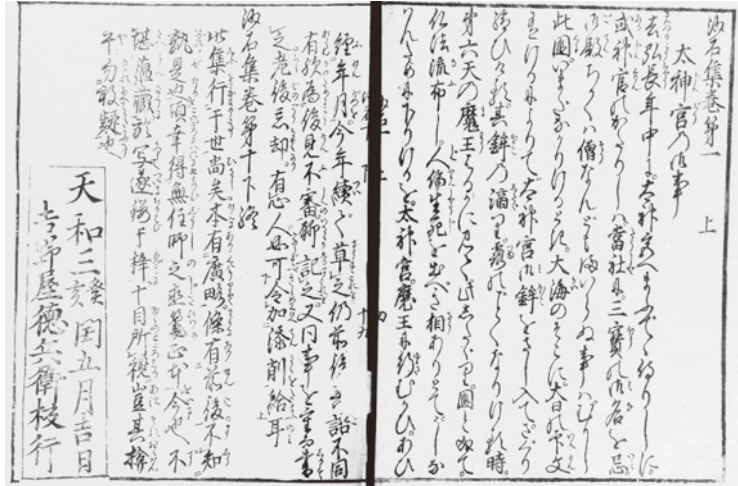 沙石集巻第一　上
太神宮の御事
去弘長年中に太神宮へまふでゝ侍りしに
或神官のかたりしハ當社に三寶の御名を忌
御殿ちかくハ僧なんどもまいらぬ事ハむかし
此國いまだなかりける時大海のそこに大日の印文
有けるによりて太神宮御鉾をさし入てさぐり
給ひける其鉾の滴り露のごとくなりける時
第六天の魔王はるかに見て此したゝり國と成て
仏法流布し人倫生死を出べき相ありとて
ために下りけるを太神宮魔王に行むかひあひ
經年月今年續之草之仍前後言語不同
有欤為後見不審聊記之又同事を重而書
之老後忘却有心人必可令加添削給耳
沙石集巻第十下終
此集行于世尚矣本有廣略條有前後不知
孰是也頃幸得無住師之正本今也不
堪蘊藏於写遂梓十目所視豈其
乎勿敢疑也
天和三癸亥閏五月吉日
徳兵衛板行